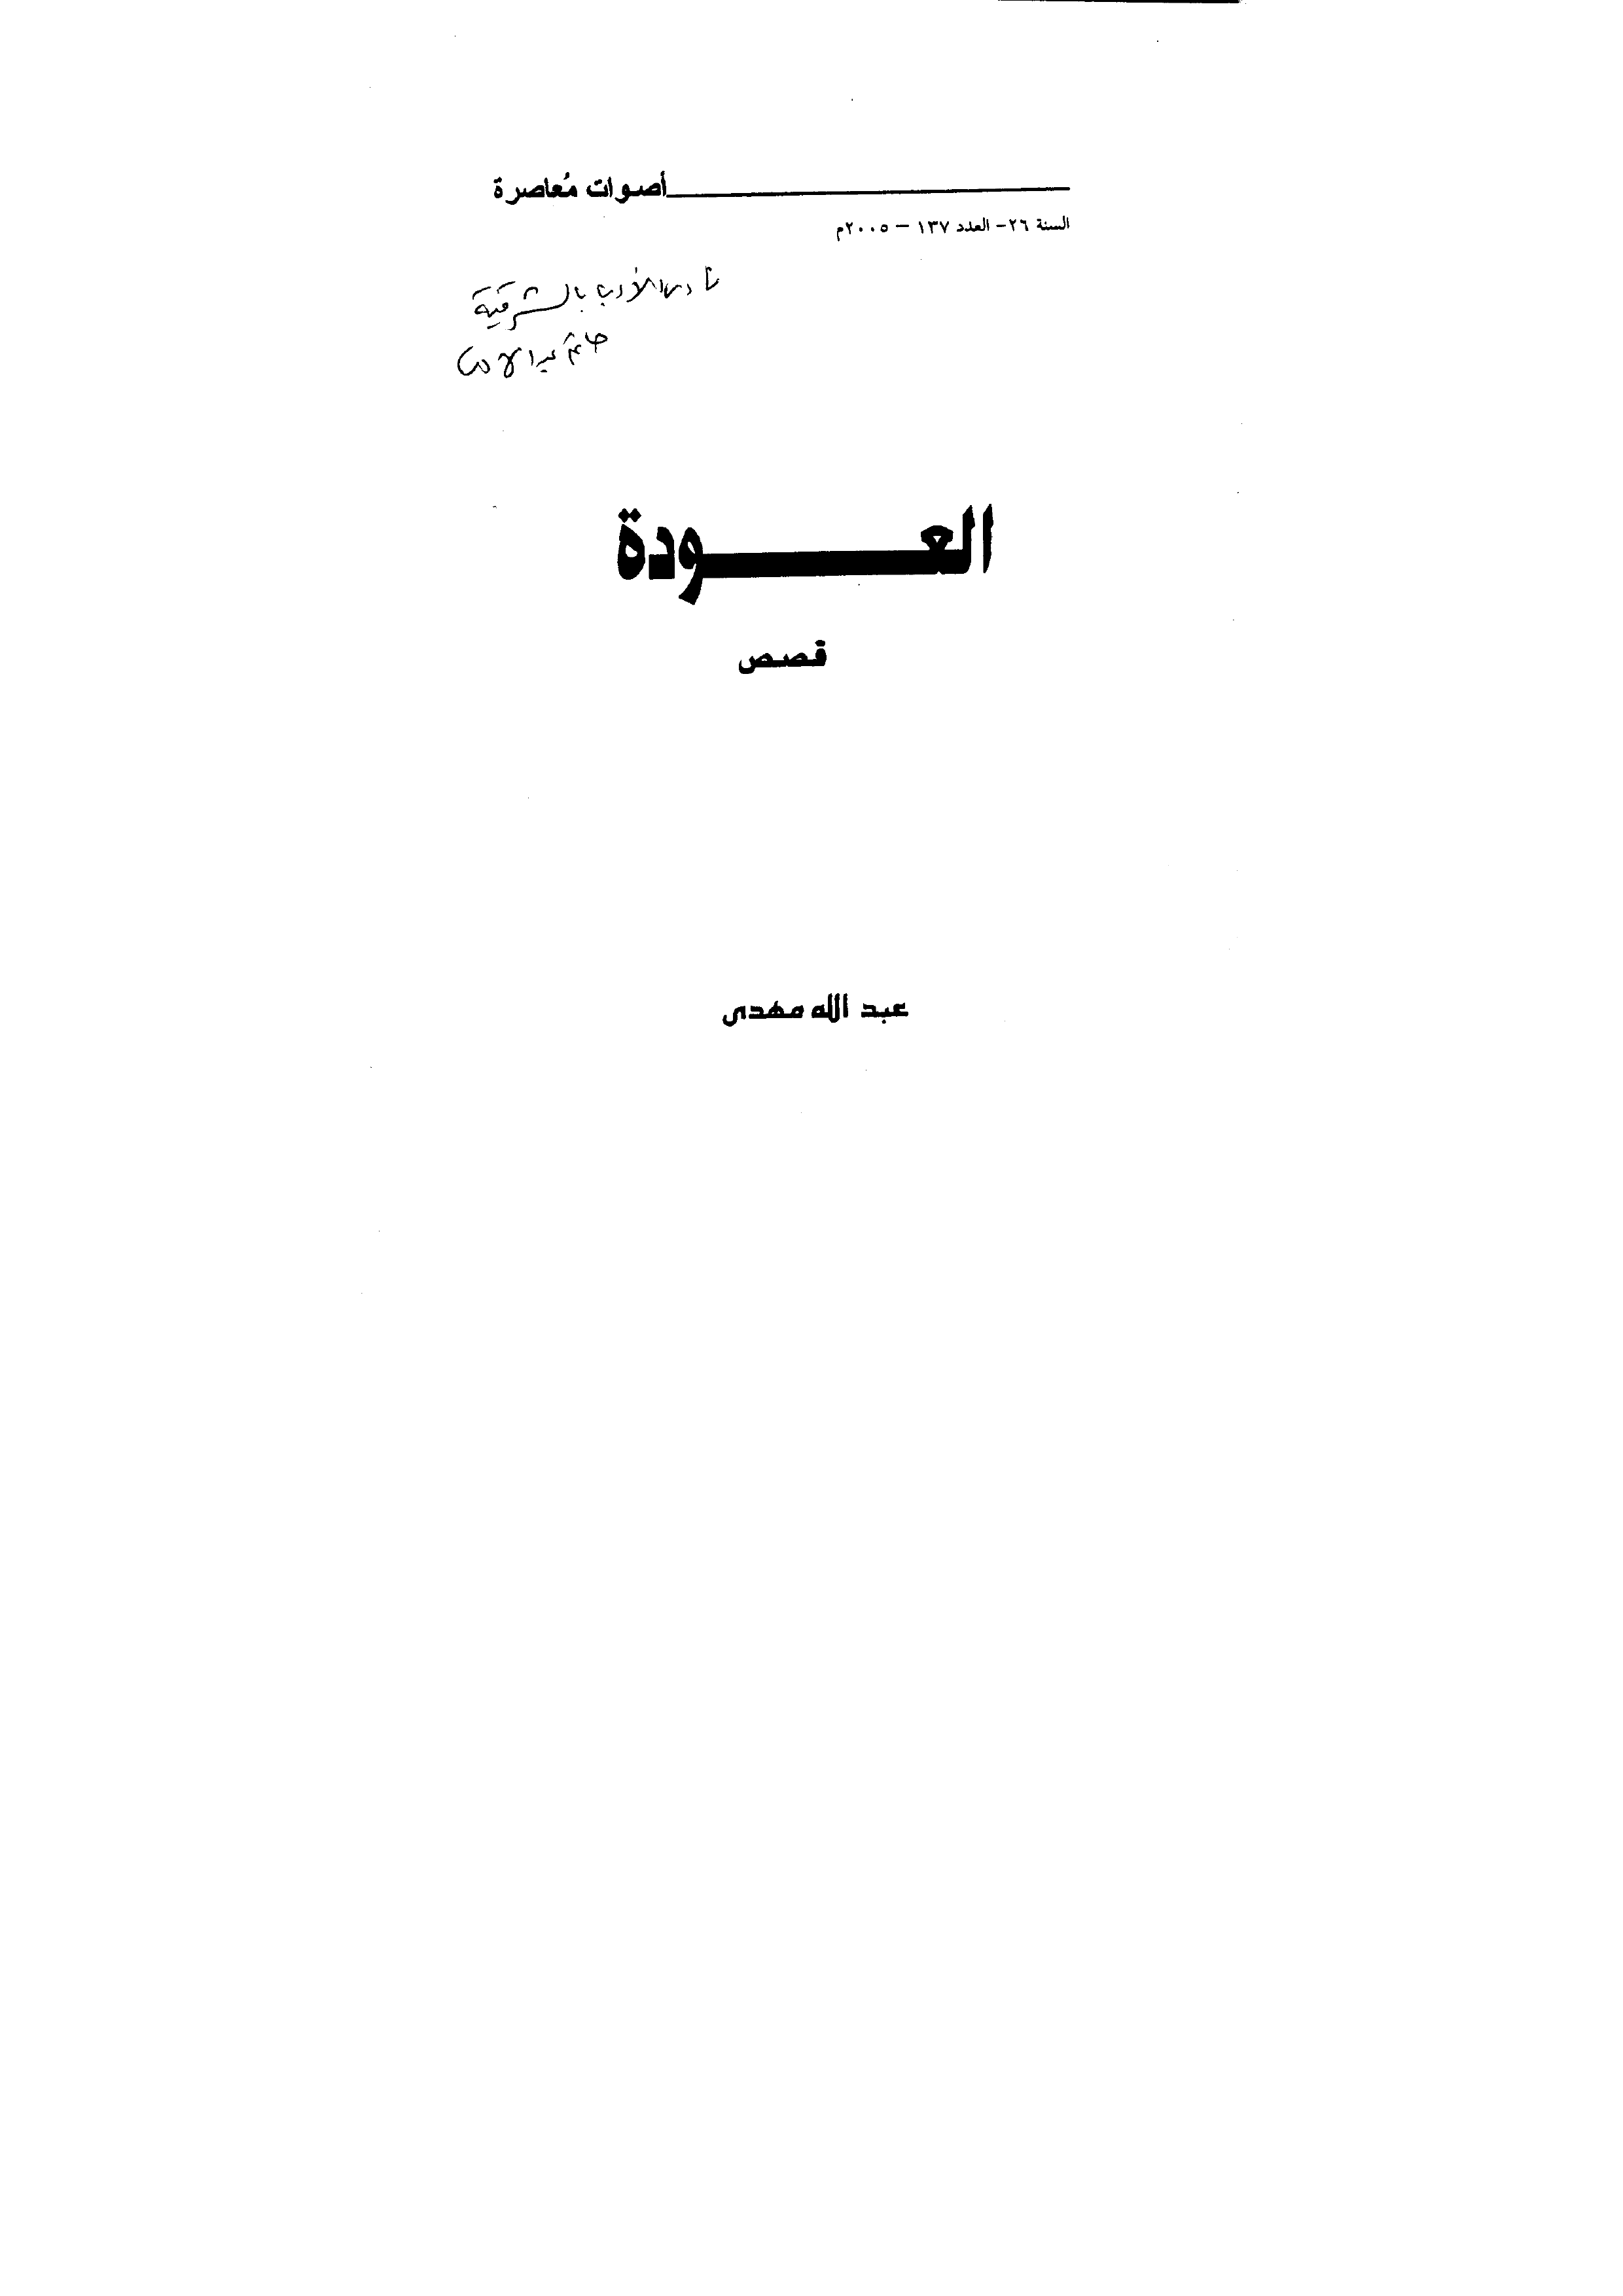 أصوات مُعاصرة
السنة ٢٦- العدد ١٣٧ – ٢٠٠٥م
نادى الأدب بالشرقية
حاتم عبد الهادى
العـــــودة
قصص
عبد الله مهدى